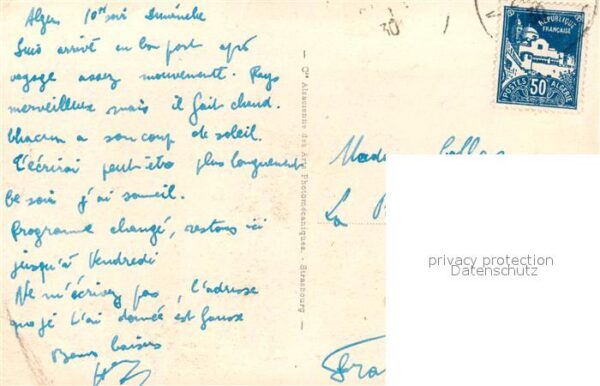 Alger 10h soir Dimanche
Suis arrivé en bon port après
voyage assez mouvementé. Pays
merveilleux mais il fait chaud.
Chacun a son coup de soleil.
T'écrirai peut-être plus longuement
Ce soir j'ai sommeil.
Programme changé, restons ici
jusqu'à Vendredi
Ne m'écrivez pas, l'adresse
que je t'ai donnée est fausse
Bons baisers
Cie Alsacienne des Arts Photomécaniques. - Strasbourg
30
RÉPUBLIQUE
FRANÇAISE
POSTES 50 ALGÉRIE
La
privacy protection
Datenschutz